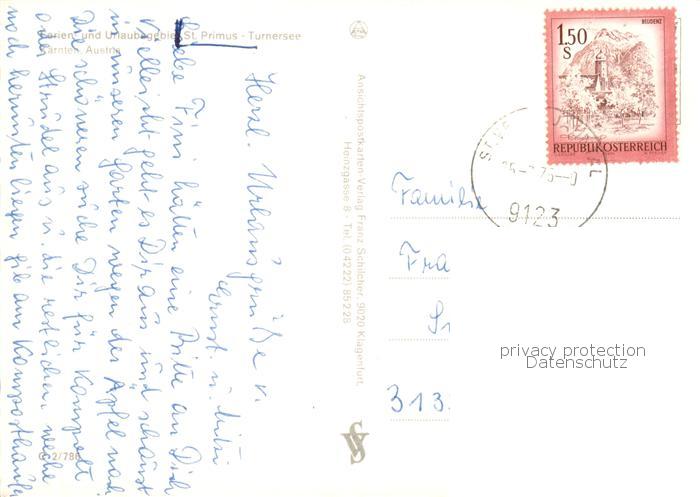 Ferien- und Urlaubsgebiet St. Primus - Turnersee
Kärnten, Austria
Herzl. Urlaubsgrüße v.
Ernst u. Mitzi
Liebe Fini hätten eine Bitte an Dich
Vielleicht geht es Dir aus und schaust
in unseren Garten wegen der Äpfel nach
Die schöneren suche Dir für Kompott
oder Strudel aus u. die restlichen, welche
noch herunten liegen gib am Komposthaufen
G 2/786
Ansichtspostkarten-Verlag Franz Schilcher, 9020 Klagenfurt,
Henselgasse 8 - Tel. (0 42 22) 85 2 28
BLUDENZ
1.50
S
REPUBLIK ÖSTERREICH
9123
Familie
Fra
313
privacy protection
Datenschutz